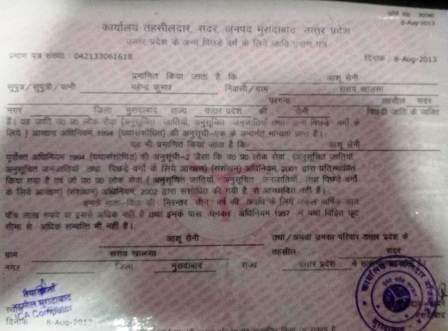 8-Aug-2013
कार्यालय तहसीलदार, सदर, जनपद मुरादाबाद, उत्तर प्रदेश
उत्तर प्रदेश के अन्य पिछड़े वर्ग के लिये जाति प्रमाण पत्र
प्रमाण पत्र संख्या : 042133061618 दिनांक : 8-Aug-2013
प्रमाणित किया जाता है कि आशू सैनी
सुपुत्र/सुपुत्री/पत्नी महेन्द्र कुमार निवासी/ग्राम सराय खालसा
परगना तहसील सदर
नगर जिला मुरादाबाद राज्य उत्तर प्रदेश की सैनी पिछड़ी जाति के व्यक्ति
है। यह जाति उ० प्र० लोक सेवा (अनुसूचित जातियों, अनुसूचित जनजातियों तथा अन्य पिछड़े वर्गों के
लिये) आरक्षण अधिनियम 1994 (यथासंशोधित) की अनुसूची-एक के अन्तर्गत मान्यता प्राप्त है।
यह भी प्रमाणित किया जाता है कि
पूर्वोक्त अधिनियम 1994 (यथासंशोधित) की अनुसूची-2 जैसा कि उ० प्र० लोक सेवा (अनुसूचित जातियों,
अनुसूचित जनजातियों तथा पिछड़े वर्गों के लिये आरक्षण) (संशोधन) अधिनियम 2001 द्वारा प्रतिस्थापित
किया गया है एवं जो उ० प्र० लोक सेवा (अनुसूचित जातियों, अनुसूचित जनजातियों तथा पिछड़े वर्गों
के लिये आरक्षण) (संशोधन) अधिनियम, 2002 द्वारा संशोधित की गयी है से आच्छादित नहीं है।
इनके माता-पिता की निरन्तर तीन वर्ष की अवधि के लिये सकल वार्षिक आय
पाँच लाख रुपये या इससे अधिक नहीं है तथा इनके पास धनकर अधिनियम 1957 में यथा विहित छूट
सीमा से अधिक सम्पत्ति भी नहीं है।
आशू सैनी तथा/अथवा उनका परिवार उत्तर प्रदेश के
ग्राम सराय खालसा तहसील सदर
नगर जिला मुरादाबाद राज्य उत्तर प्रदेश में
तहसील मुरादाबाद
Computer
दिनांक 8-Aug-2013